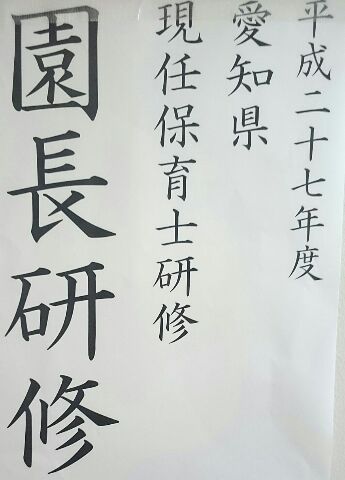 平成二十七年度
愛知県
現任保育士研修
園長研修